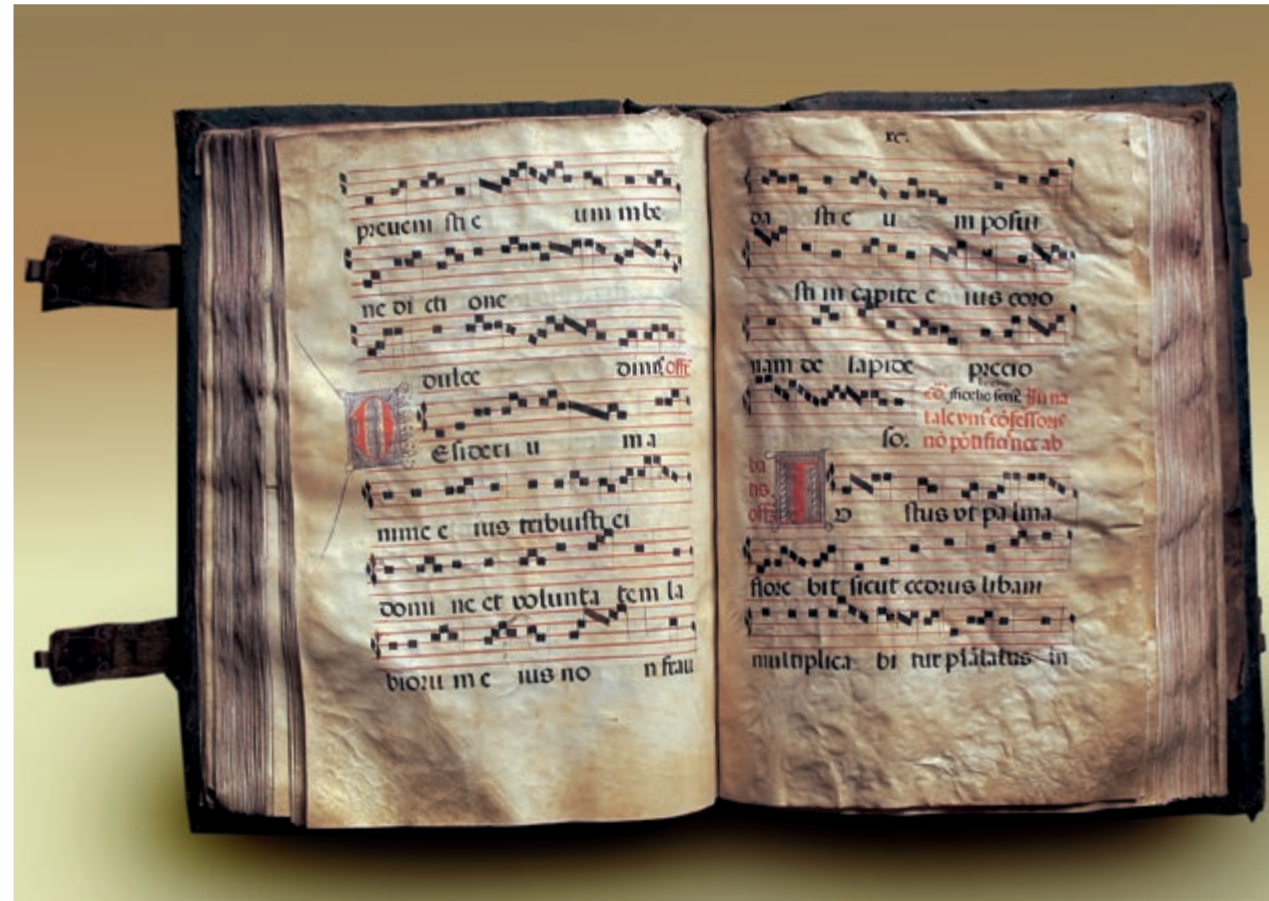 preueni sti e um in be
ne di cti one
dulce dinis offr
D Esideri u ma
nime e ius tribuisti ei
domi ne et volunta tem la
bioru m e ius no n frau
xc.
da sti e u m posui
sti in capite e ius coro
nam de lapide precio
so.
In na
tale vni9 cōfessoris
nō pōtifici nec ab
ba
tis
offr
I V stus vt palma
flore bit sicut cedrus libani
multiplica bi tur in